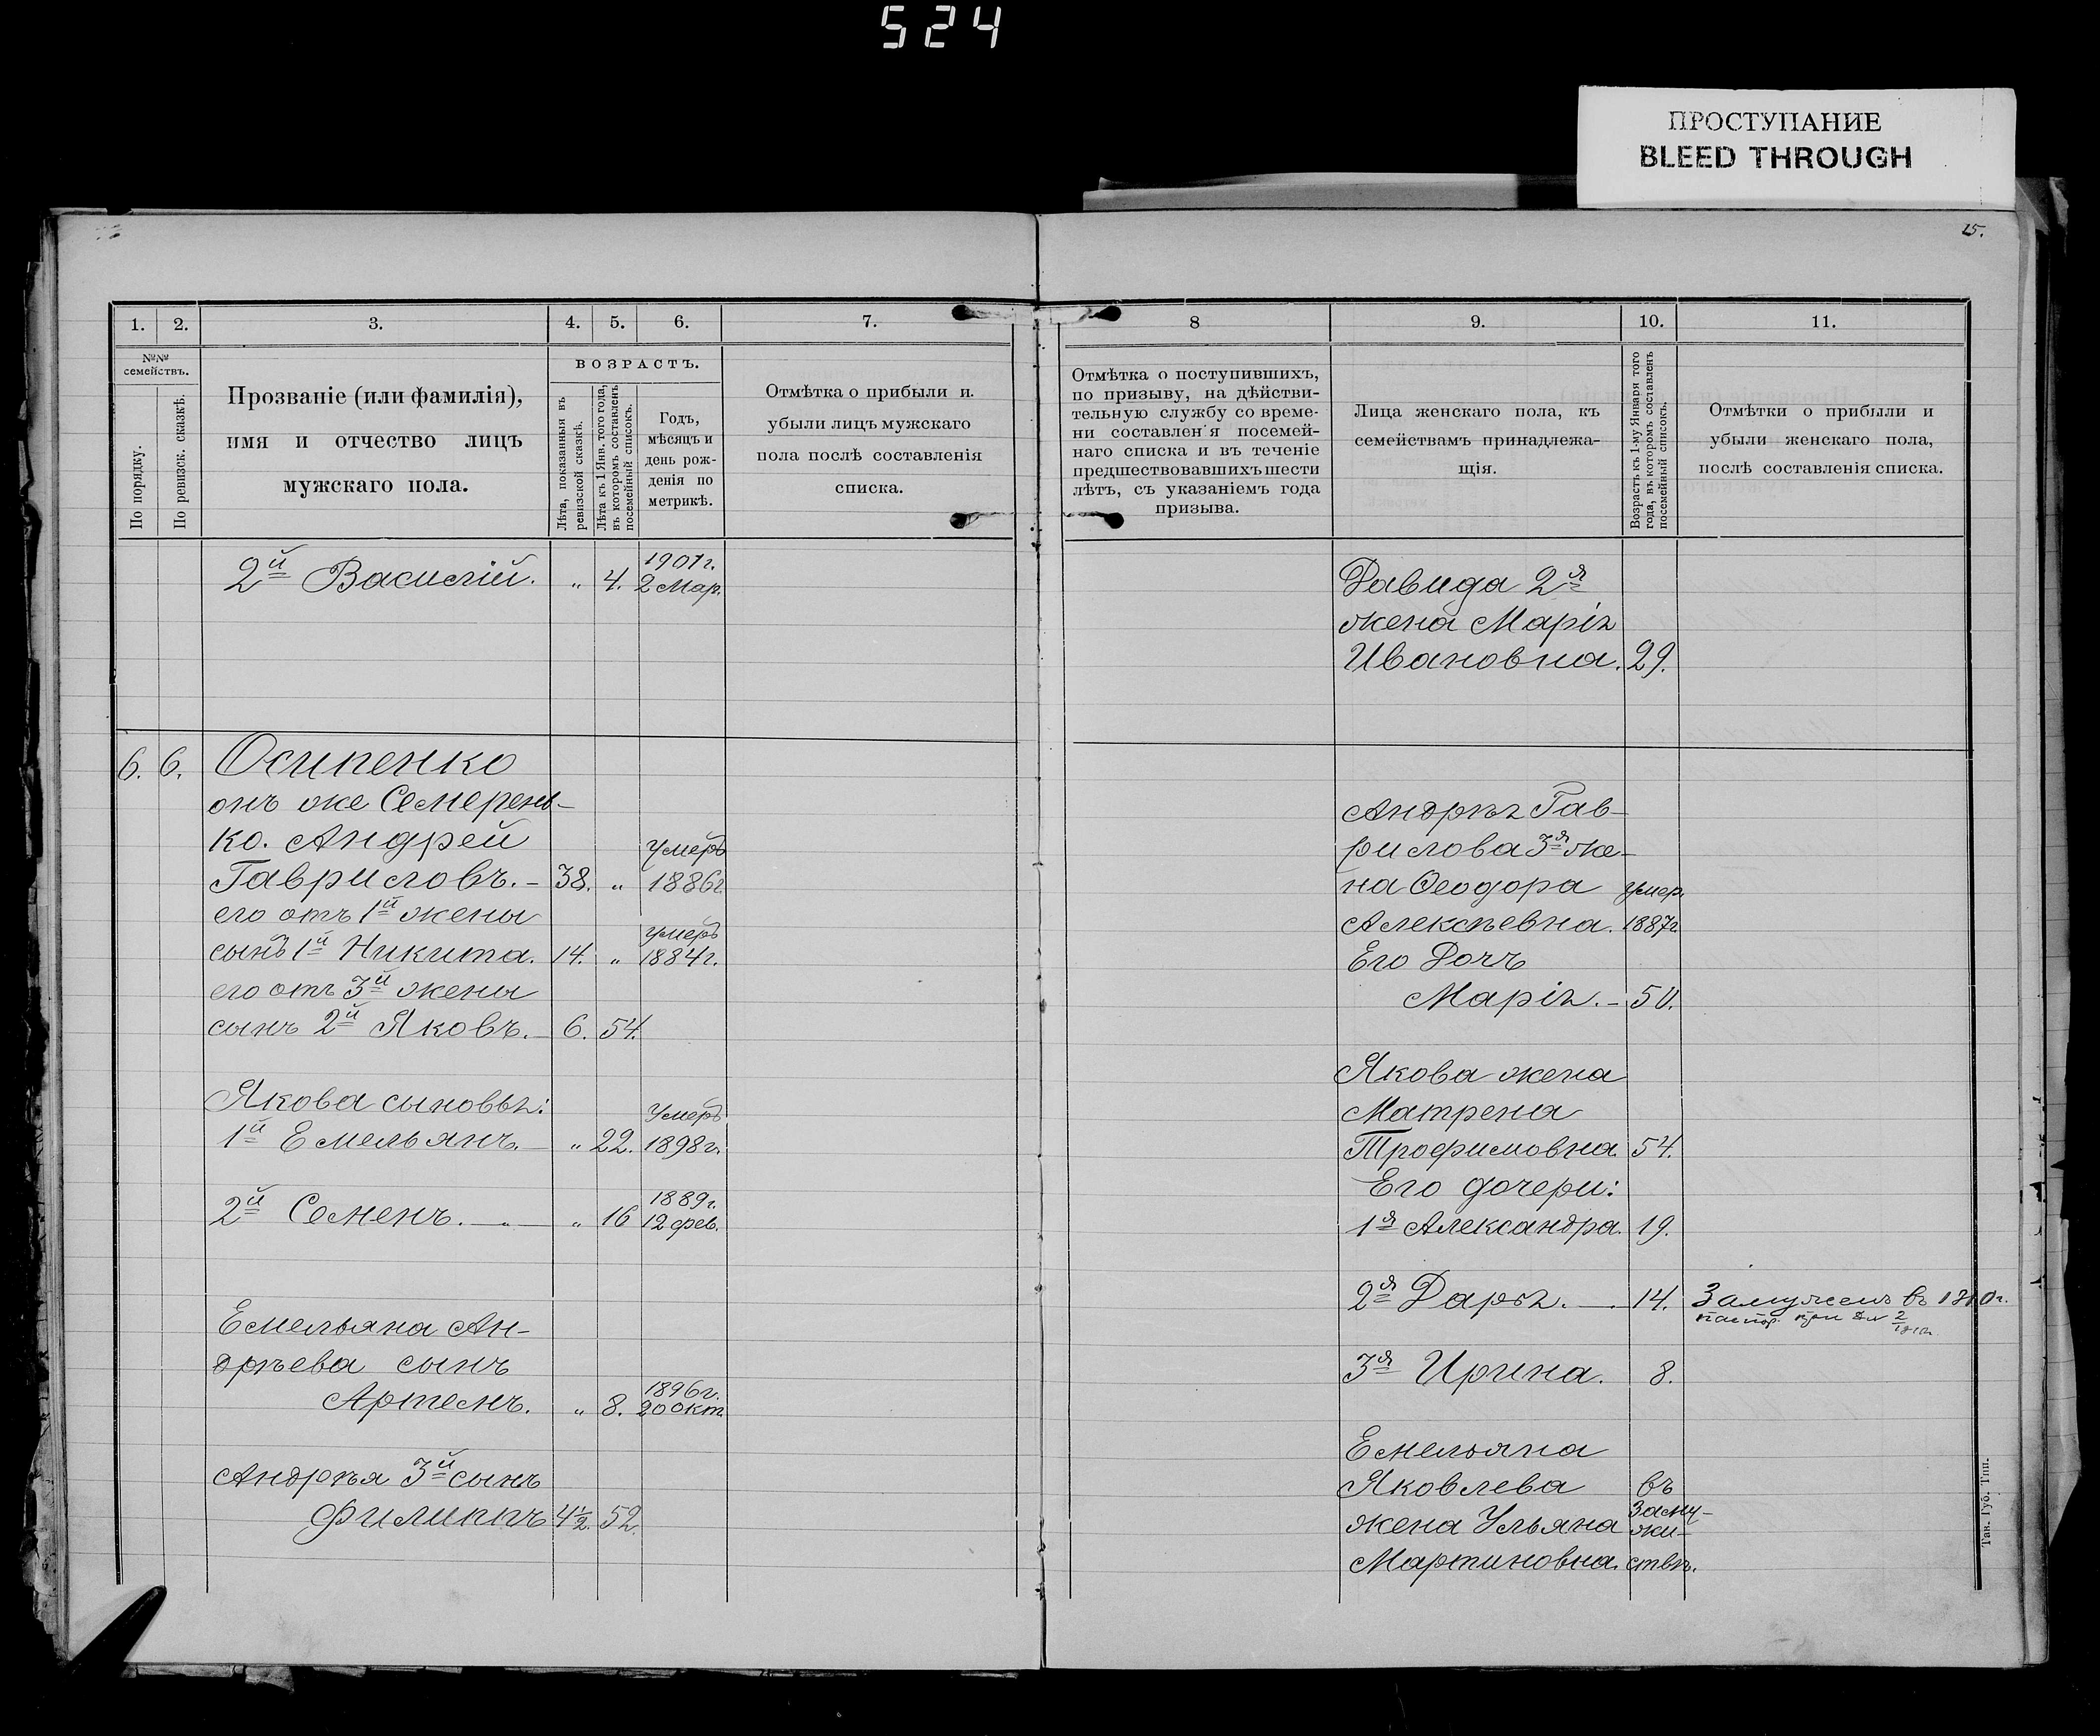 524
ПРОСТУПАНИЕ
BLEED THROUGH
15.
1. 2. 3. 4. 5. 6. 7.
№№ семействъ.
По порядку.
По ревизск. сказкѣ.
Прозваніе (или фамилія),
имя и отчество лицъ
мужскаго пола.
ВОЗРАСТЪ.
Лѣта, показанныя въ
ревизской сказкѣ.
Лѣта къ 1 Янв. того года,
въ которомъ составленъ
посемейный списокъ.
Годъ,
мѣсяцъ и
день рож-
денія по
метрикѣ.
Отмѣтка о прибыли и
убыли лицъ мужскаго
пола послѣ составленія
списка.
2й Василій. „ 4. 1901г.
2 Мар.
6. 6. Осипенко
онъ же Семерень-
ко. Андрей
Гавриловъ. - 38. „ умеръ
1886г.
его отъ 1й жены
сынъ 1й Никита. 14. „ умеръ
1884г.
его отъ 3й жены
сынъ 2й Яковъ. - 6. 54.
Якова сыновья:
1й Емельянъ. „ 22. Умеръ
1898г.
2й Семенъ. „ „ 16 1889г.
12 фев.
Емельяна Ан-
дрѣева сынъ
Артемъ. „ 8. 1896г.
20 Окт.
Андрѣя 3й сынъ
Филиппъ 4½. 52.
8 9. 10. 11.
Отмѣтка о поступившихъ,
по призыву, на дѣйстви-
тельную службу со време-
ни составленія посемей-
наго списка и въ теченіе
предшествовавшихъ шести
лѣтъ, съ указаніемъ года
призыва.
Лица женскаго пола, къ
семействамъ принадлежа-
щія.
Возрастъ къ 1-му Января того
года, въ которомъ составленъ
посемейный списокъ.
Отмѣтки о прибыли и
убыли женскаго пола,
послѣ составленія списка.
Давида 2я
жена Марія
Ивановна. 29.
Андрѣя Гав-
рилова 3я же-
на Ѳеодора умер.
Алексѣевна. 1887г.
Его Дочь
Марія. - 50.
Якова жена
Матрена
Трофимовна. 54.
Его дочери:
1я Александра. 19.
2я Дарья. 14. Замужемъ въ 1910г.
3я Ирина. 8.
Емельяна
Яковлева въ
жена Ульяна заму-
жи-
Мартиновна. ствѣ.
Тав. Губ. Тип.